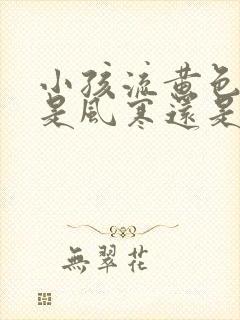 小孩流黄色
是風寒還是
無翠花